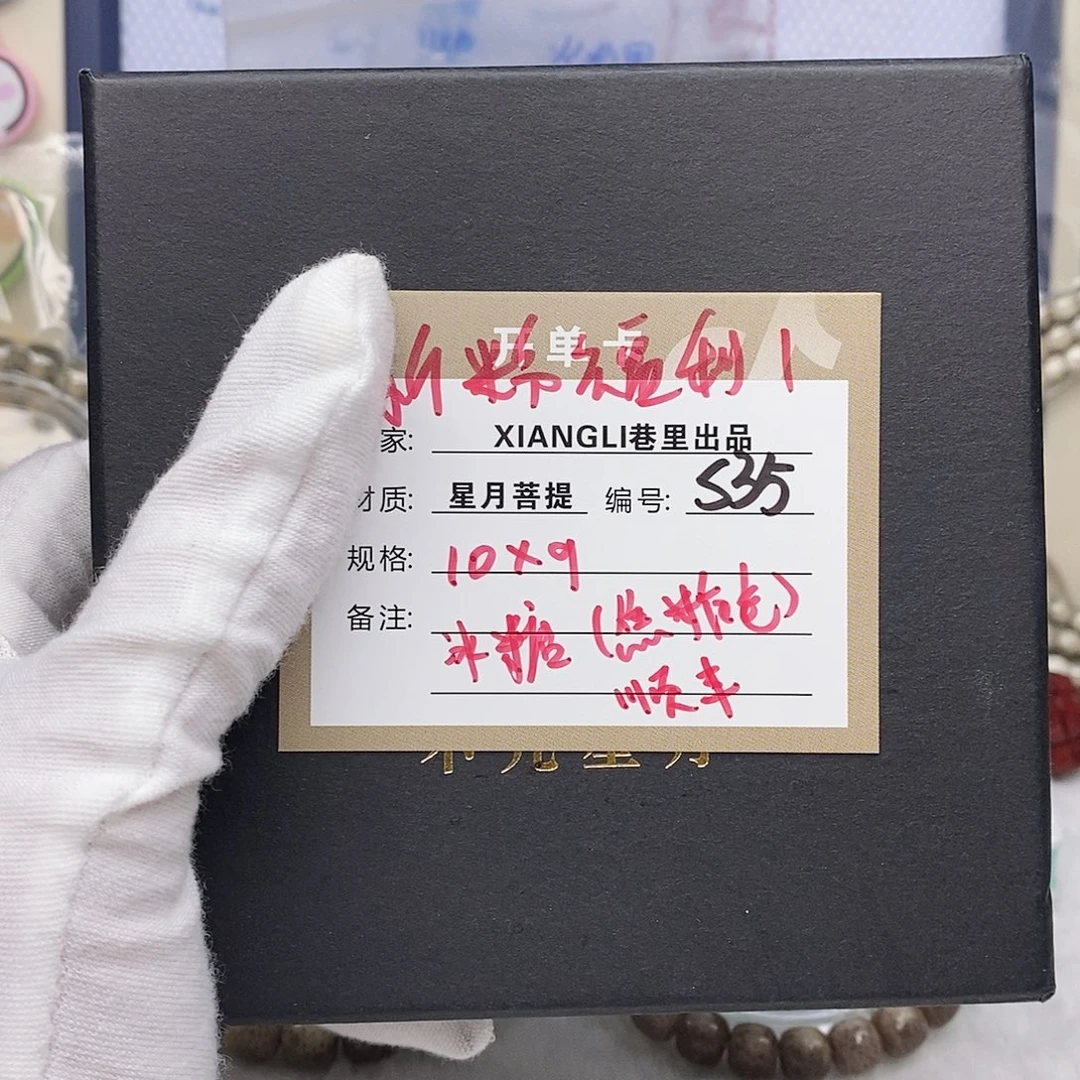 开单卡
新粉福利1
家: XIANGLI巷里出品
材质: 星月菩提 编号: S35
规格: 10×9
备注: 冰糖(焦糖色)
顺丰